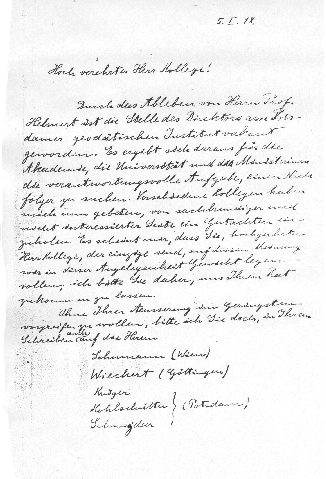 5. I. 18.
Hoch verehrter Herr Kollege!
Durch das Ableben von Herrn Prof.
Helmert ist die Stelle des Direktors vom Pots-
damer geodätischen Institut vakant
geworden. Es ergibt sich daraus für die
Akademie, die Universität und das Ministerium
die verantwortungsvolle Aufgabe, einen Nach-
folger zu suchen. Verschiedene Kollegen haben
mich nun gebeten, von sachkundiger und
nicht interessierter Seite ein Gutachten ein-
zuholen. Es scheint mir, dass Sie, hochgeehrter
Herr Kollege, der einzige sind, auf dessen Meinung
wir in dieser Angelegenheit Gewicht legen
wollen; ich bitte Sie daher, uns Ihren Rat
zukommen zu lassen.
Ohne Ihrer Äusserung im Geringsten
vorgreifen zu wollen, bitte ich Sie doch, in Ihrem
Schreiben auch auf die Herren
Schumann (Wien)
Wiechert (Göttingen)
Krüger
Kohlschütter (Potsdam)
Schweydar